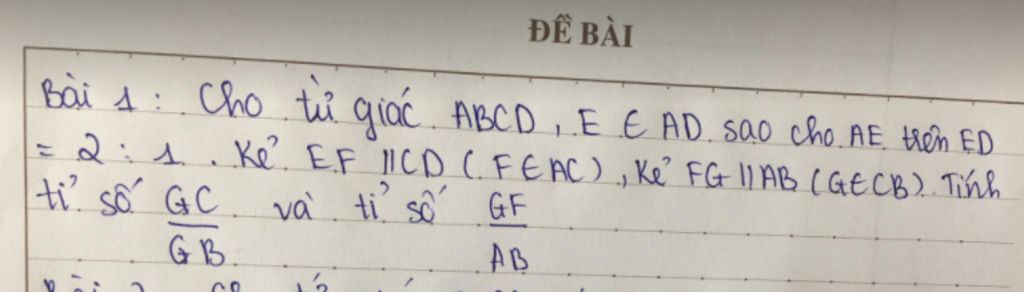 ĐỀ BÀI
Bài 1 : Cho tứ giác ABCD, E ∈ AD sao cho AE trên ED
= 2 : 1. Kẻ EF // CD ( F ∈ AC ), Kẻ FG // AB ( G ∈ CB ). Tính
tỉ số GC/GB và tỉ số GF/AB